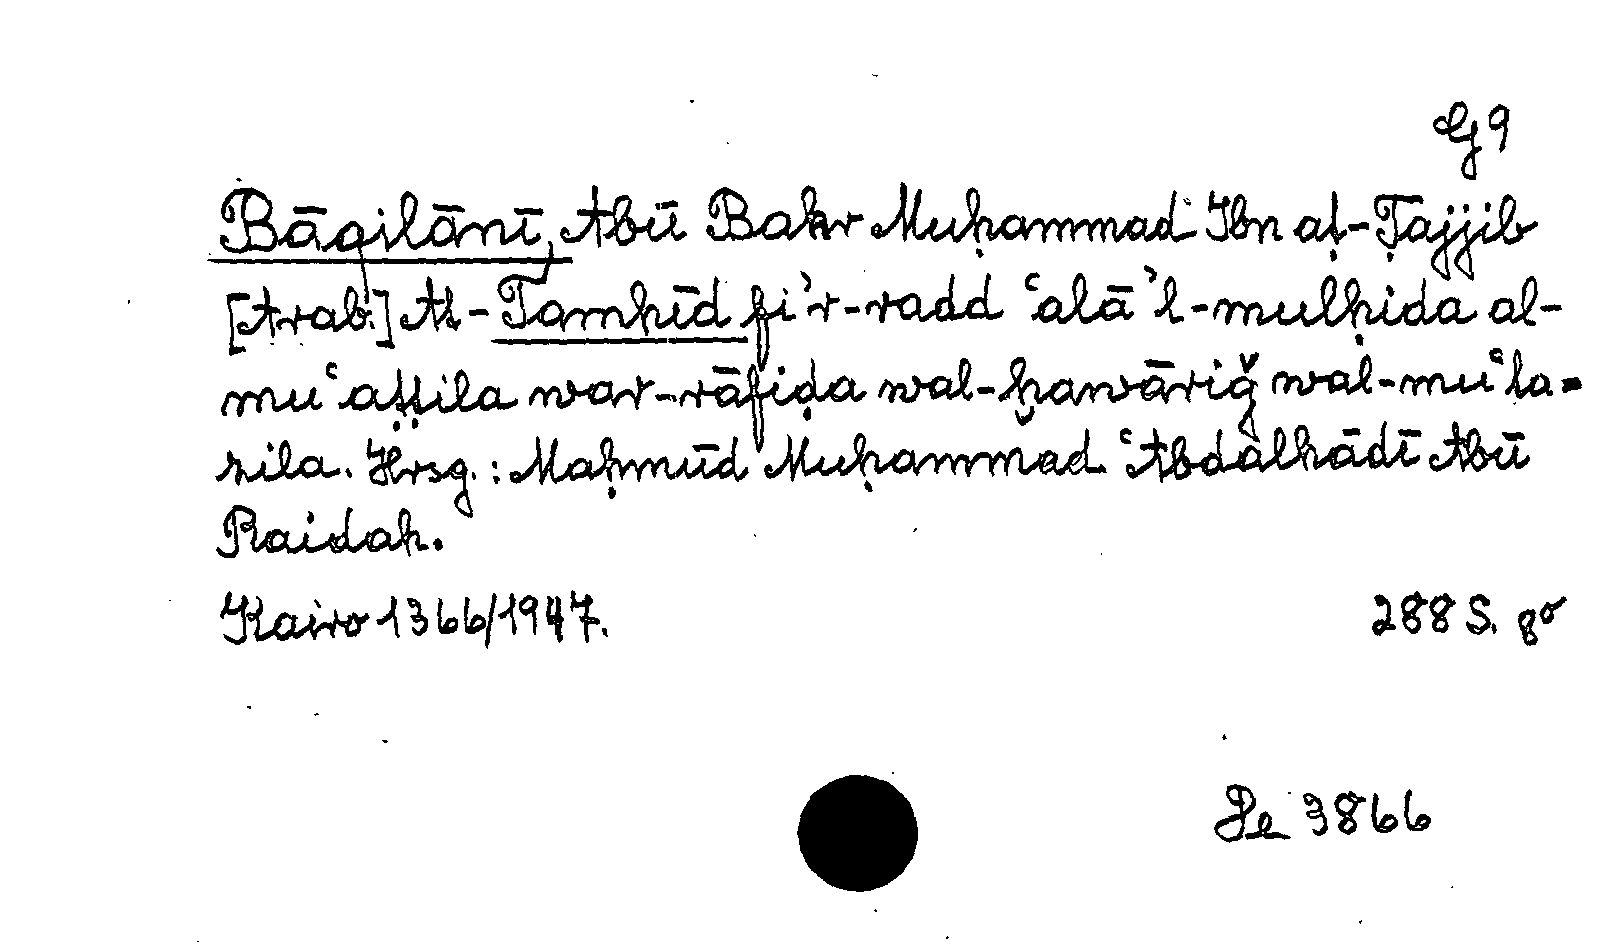 G 9
Bāqilānī, Abū Bakr Muḥammad Ibn aṭ-Ṭajjib
[Arab.] At-Tamhīd fi’r-radd ‘alā’l-mulḥida al-
mu‘aṭṭila war-rāfiḍa wal-ḫawāriǧ wal-mu‘ta=
zila. Hrsg.: Maḥmūd Muḥammad ‘Abdalhādī Abū
Raidah.
Kairo 1366/1947. 288 S. 8°
De 3866